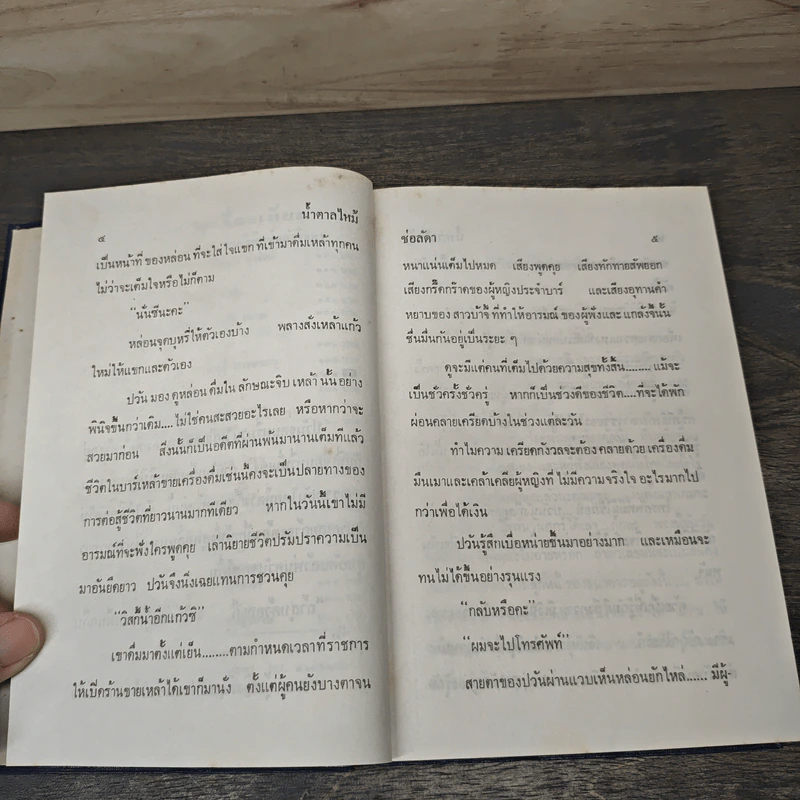 ๔
น้ำตาลไหม้
เป็นหน้าที่ ของหล่อน ที่จะใส่ใจแขก ที่เข้ามาดื่มเหล้าทุกคน
ไม่ว่าจะเต็มใจหรือไม่ก็ตาม
“นั่นซีนะคะ”
หล่อนจุดบุหรี่ให้ตัวเองบ้าง พลางสั่งเหล้าแก้ว
ใหม่ให้แขกและตัวเอง
ปวัน มอง ดูหล่อน ดื่มใน ลักษณะจิบ เหล้า นั้น อย่าง
พินิจขึ้นกว่าเดิม....ไม่ใช่คนสะสวยอะไรเลย หรือหากว่าจะ
สวยมาก่อน สิ่งนั้นก็เป็นอดีตที่ผ่านพ้นมานานเต็มทีแล้ว
ชีวิตในบาร์เหล้าขายเครื่องดื่มเช่นนี้คงจะเป็นปลายทางของ
การต่อสู้ชีวิตที่ยาวนานมากทีเดียว หากในวันนี้เขาไม่มี
อารมณ์ที่จะฟังใครพูดคุย เล่านิยายชีวิตปรัมปราความเป็น
มาอันยืดยาว ปวันจึงนิ่งเฉยแทนการชวนคุย
“วิสกี้น้ำอีกแก้วซิ”
เขาดื่มมาตั้งแต่เย็น........ตามกำหนดเวลาที่ราชการ
ให้เปิดร้านขายเหล้าได้เขาก็มานั่ง ตั้งแต่ผู้คนยังบางตาจน
ช่อลัดา
๕
หนาแน่นเต็มไปหมด เสียงพูดคุย เสียงทักทายสัพยอก
เสียงกรี๊ดกร๊าดของผู้หญิงประจำบาร์ และเสียงอุทานคำ
หยาบของ สาวบ้าจี้ ที่ทำให้อารมณ์ ของผู้ฟังและ แกล้งจี้นั้น
ชื่นมื่นกันอยู่เป็นระยะ ๆ
ดูจะมีแต่คนที่เต็มไปด้วยความสุขทั้งสิ้น........ แม้จะ
เป็นชั่วครั้งชั่วครู่ หากก็เป็นช่วงดีของชีวิต....ที่จะได้พัก
ผ่อนคลายเครียดบ้างในช่วงแต่ละวัน
ทำไมความ เครียดกังวลจะต้อง คลายด้วย เครื่องดื่ม
มึนเมาและเคล้าเคลียผู้หญิงที่ ไม่มีความจริงใจ อะไรมากไป
กว่าเพื่อได้เงิน
ปวันรู้สึกเบื่อหน่ายขึ้นมาอย่างมาก และเหมือนจะ
ทนไม่ได้ขึ้นอย่างรุนแรง
“กลับหรือคะ”
“ผมจะไปโทรศัพท์”
สายตาของปวันผ่านแวบเห็นหล่อนยักไหล่...... มีผู้-